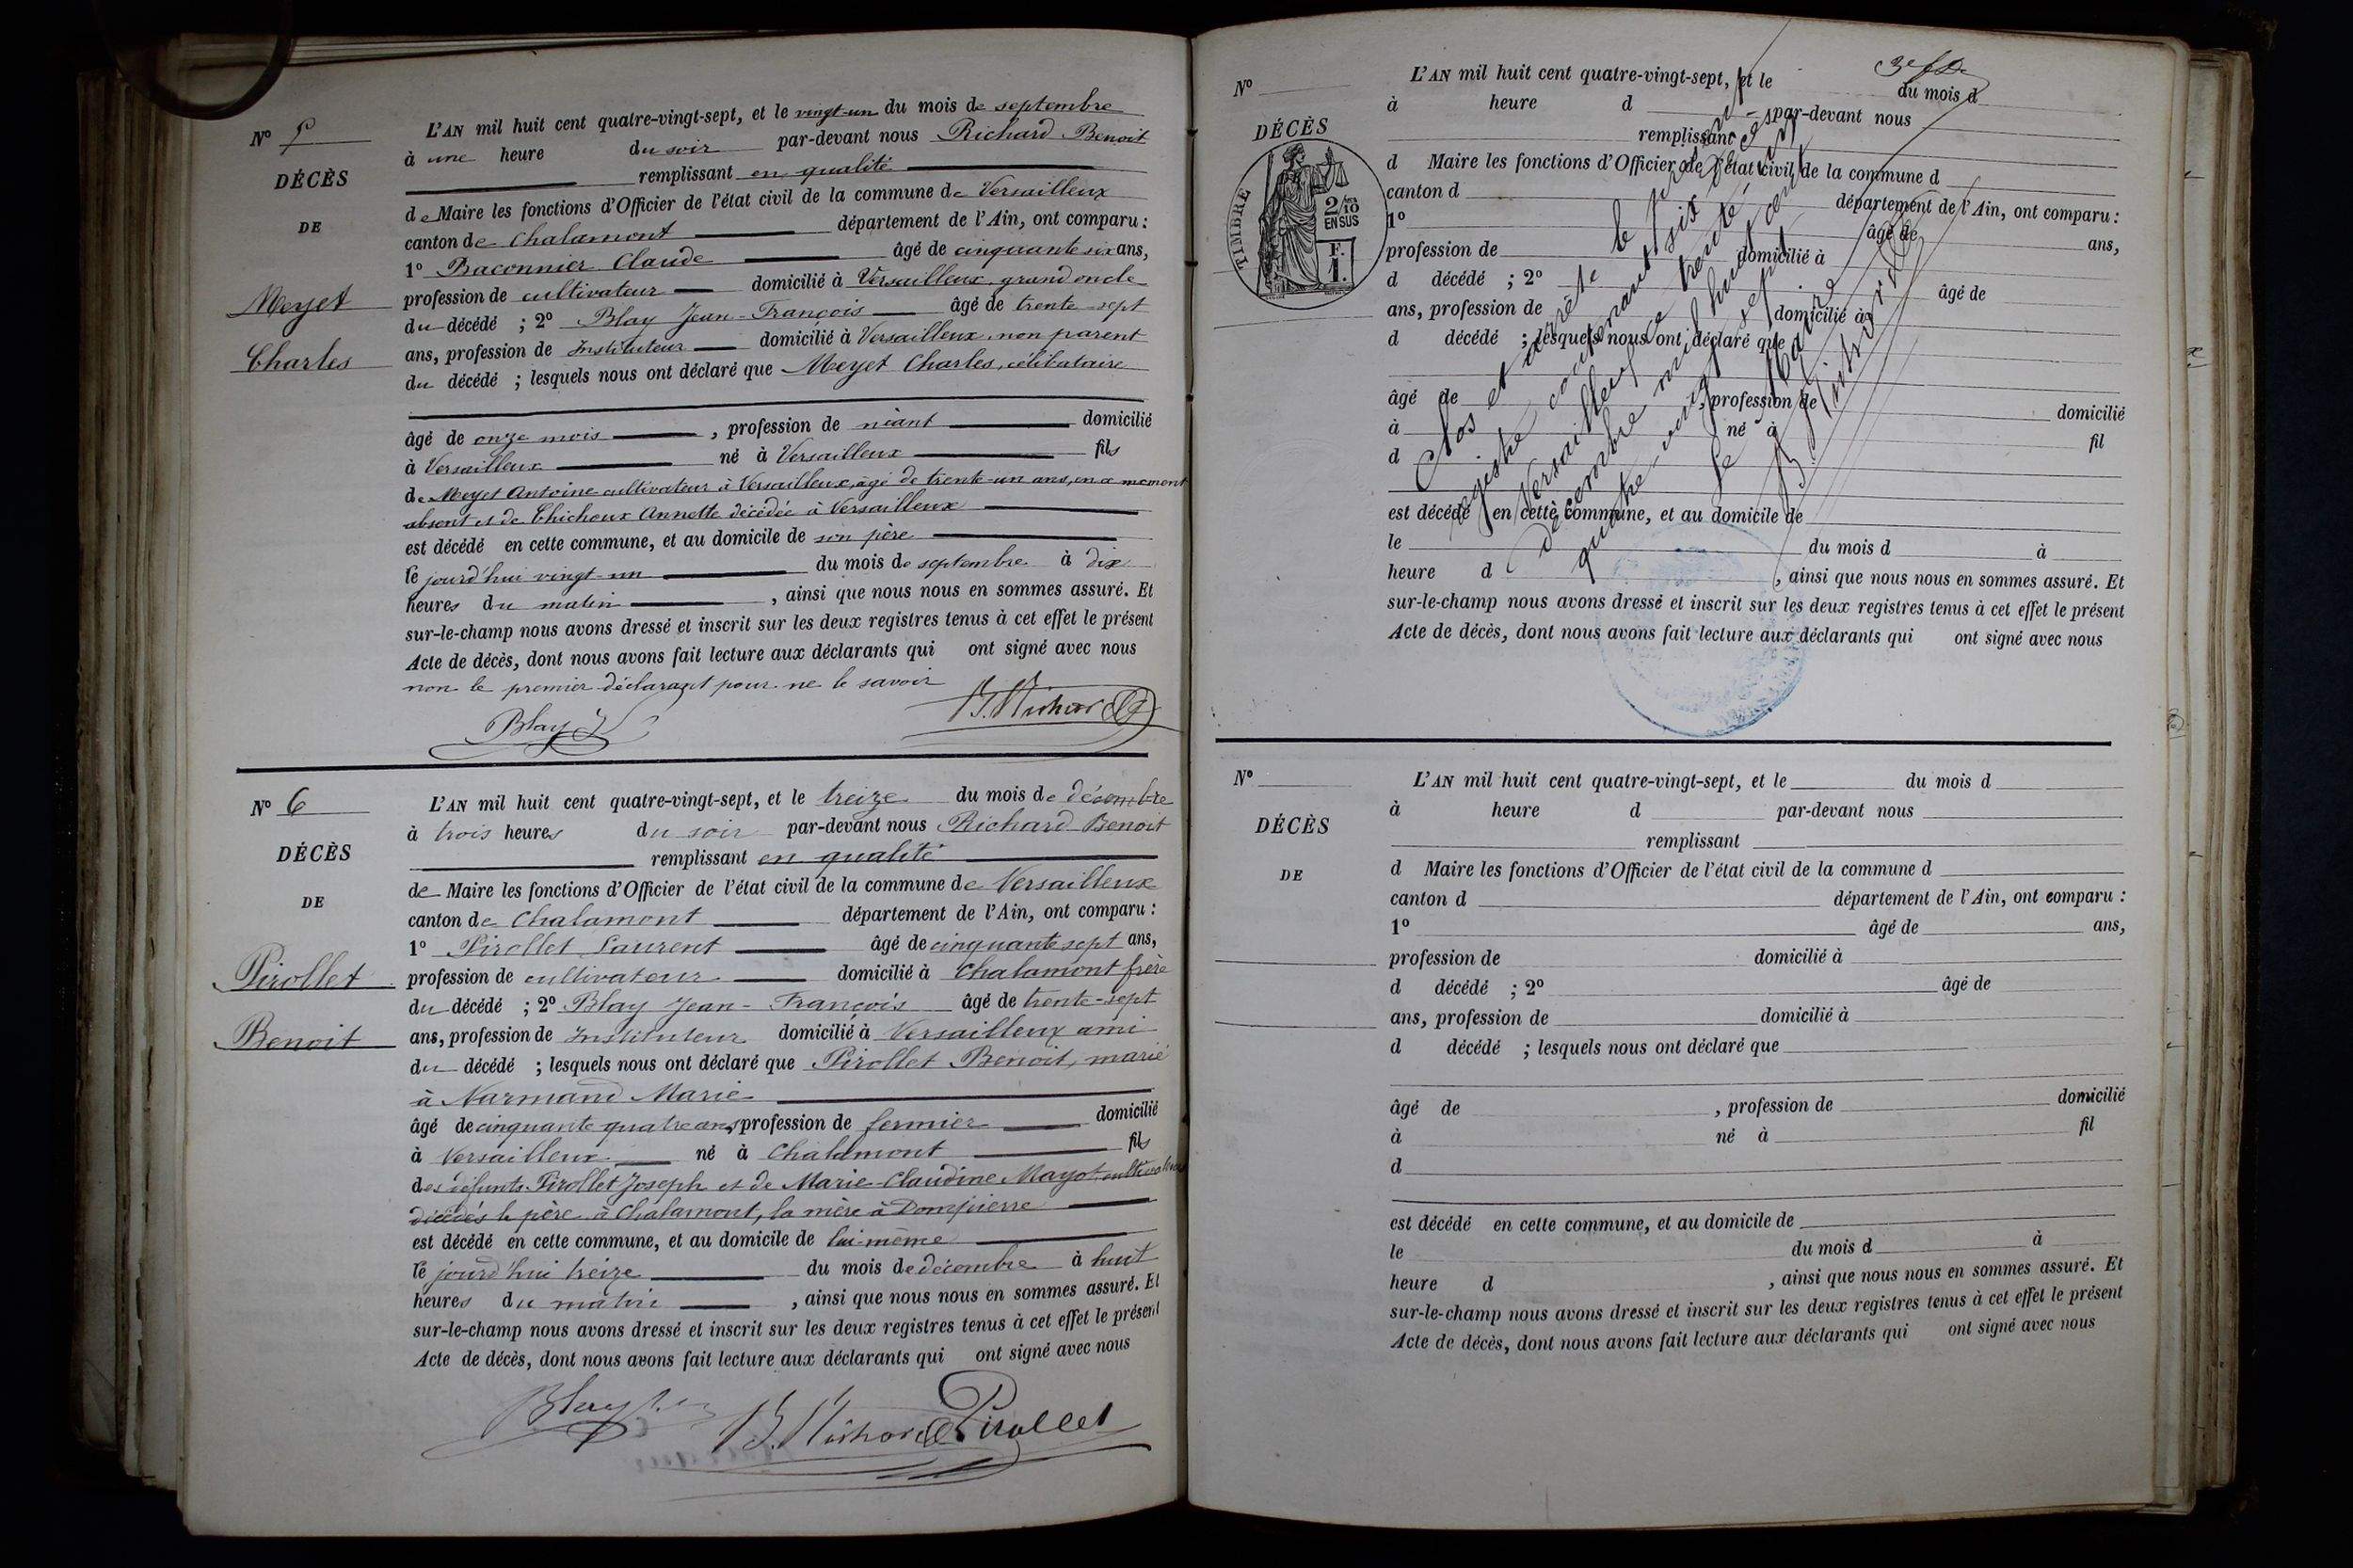 N° 5
DÉCÈS
DE
Meyet
Charles
L'AN mil huit cent quatre-vingt-sept, et le vingt-un du mois de septembre
à une heure du soir par-devant nous Richard Benoit
remplissant en qualité
de Maire les fonctions d'Officier de l'état civil de la commune de Versailleux
canton de Chalamont département de l'Ain, ont comparu :
1° Baconnier Claude âgé de cinquante six ans,
profession de cultivateur domicilié à Versailleux, grand oncle
du décédé ; 2° Blay Jean-François âgé de trente-sept
ans, profession de Instituteur domicilié à Versailleux, non parent
du décédé ; lesquels nous ont déclaré que Meyet Charles, célibataire
âgé de onze mois , profession de néant domicilié
à Versailleux né à Versailleux fils
de Meyet Antoine cultivateur à Versailleux, âgé de trente-un ans, en ce moment
absent et de Chichoux Annette décédée à Versailleux
est décédé en cette commune, et au domicile de son père
le jourd'hui vingt-un du mois de septembre à dix
heures du matin , ainsi que nous nous en sommes assuré. Et
sur-le-champ nous avons dressé et inscrit sur les deux registres tenus à cet effet le présent
Acte de décès, dont nous avons fait lecture aux déclarants qui ont signé avec nous
non le premier déclarant pour ne le savoir
Blay J B. Richard
N° 6
DÉCÈS
DE
Pirollet
Benoit
L'AN mil huit cent quatre-vingt-sept, et le treize du mois de décembre
à trois heures du soir par-devant nous Richard Benoit
remplissant en qualité
de Maire les fonctions d'Officier de l'état civil de la commune de Versailleux
canton de Chalamont département de l'Ain, ont comparu :
1° Pirollet Laurent âgé de cinquante sept ans,
profession de cultivateur domicilié à Chalamont frère
du décédé ; 2° Blay Jean-François âgé de trente-sept
ans, profession de Instituteur domicilié à Versailleux ami
du décédé ; lesquels nous ont déclaré que Pirollet Benoit, marié
à Narmand Marie
âgé de cinquante quatre ans, profession de fermier domicilié
à Versailleux né à Chalamont fils
des défunts Pirollet Joseph et de Marie-Claudine Mayot, cultivateurs
décédés le père à Chalamont, la mère à Dompierre
est décédé en cette commune, et au domicile de lui-même
le jourd'hui treize du mois de décembre à huit
heures du matin , ainsi que nous nous en sommes assuré. Et
sur-le-champ nous avons dressé et inscrit sur les deux registres tenus à cet effet le présent
Acte de décès, dont nous avons fait lecture aux déclarants qui ont signé avec nous
Blay B. Richard Pirollet
N°
DÉCÈS
TIMBRE
2/10
EN SUS
F.
1.
L'AN mil huit cent quatre-vingt-sept, et le du mois d
à heure d par-devant nous
remplissant
d Maire les fonctions d'Officier de l'état civil de la commune d
canton d département de l'Ain, ont comparu :
1° âgé de ans,
profession de domicilié à
d décédé ; 2° âgé de
ans, profession de domicilié à
d décédé ; lesquels nous ont déclaré que
âgé de , profession de domicilié
à né à fil
d
est décédé en cette commune, et au domicile de
le du mois d à
heure d , ainsi que nous nous en sommes assuré. Et
sur-le-champ nous avons dressé et inscrit sur les deux registres tenus à cet effet le présent
Acte de décès, dont nous avons fait lecture aux déclarants qui ont signé avec nous
Clos et arrêté le présent
registre contenant six actes
Versailleux le trente un
décembre mil huit cent
quatre-vingt sept
Le Maire
B. Richard
N°
DÉCÈS
DE
L'AN mil huit cent quatre-vingt-sept, et le du mois d
à heure d par-devant nous
remplissant
d Maire les fonctions d'Officier de l'état civil de la commune d
canton d département de l'Ain, ont comparu :
1° âgé de ans,
profession de domicilié à
d décédé ; 2° âgé de
ans, profession de domicilié à
d décédé ; lesquels nous ont déclaré que
âgé de , profession de domicilié
à né à fil
d
est décédé en cette commune, et au domicile de
le du mois d à
heure d , ainsi que nous nous en sommes assuré. Et
sur-le-champ nous avons dressé et inscrit sur les deux registres tenus à cet effet le présent
Acte de décès, dont nous avons fait lecture aux déclarants qui ont signé avec nous